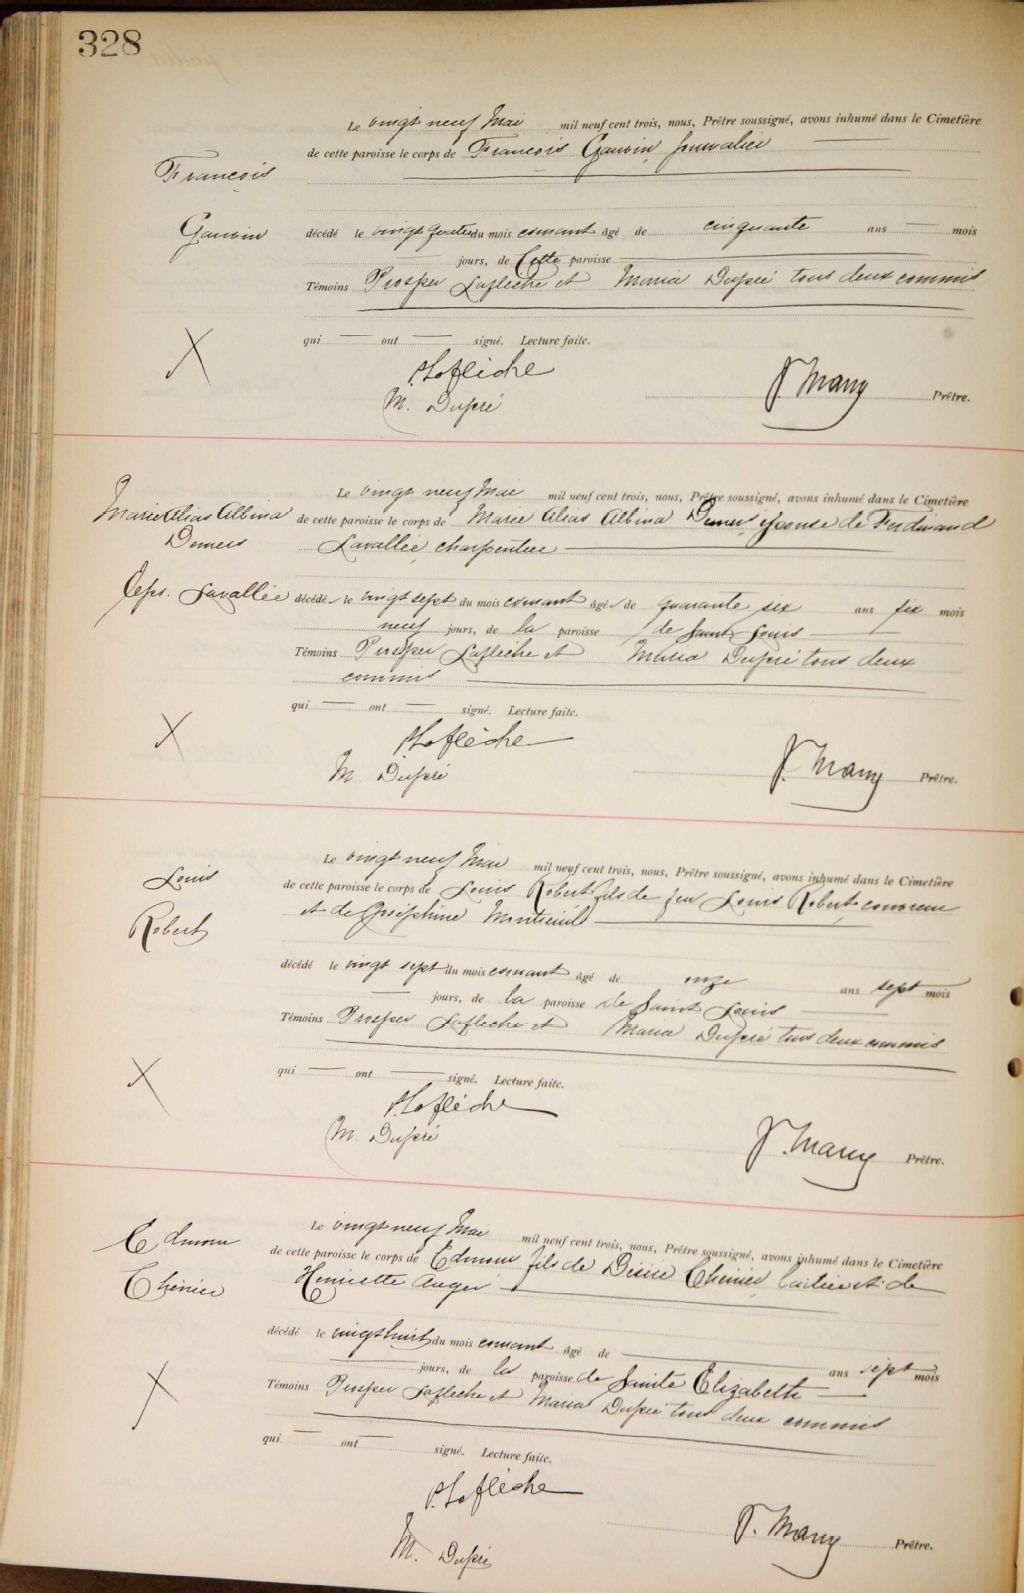 328
Le vingt neuf Mai mil neuf cent trois, nous, Prêtre soussigné, avons inhumé dans le Cimetière
de cette paroisse le corps de François Gauvin journalier
François
Gauvin
décédé le vingt quatre du mois courant âgé de cinquante ans mois
jours, de Cette paroisse
Témoins Prosper Laflèche et Maria Dupré tous deux commis
qui ont signé. Lecture faite.
X
P. Laflèche
M. Dupré
J. Many Prêtre.
Le vingt neuf Mai mil neuf cent trois, nous, Prêtre soussigné, avons inhumé dans le Cimetière
Marie Alias Albina
Demers
de cette paroisse le corps de Marie Alias Albina Demers épouse de Ferdinand
Lavallée charpentier
Eps. Lavallée
décédé le vingt sept du mois courant âgé de quarante six ans six mois
neuf jours, de la paroisse de Saint Louis
Témoins Prosper Laflèche et Maria Dupré tous deux
commis
qui ont signé. Lecture faite.
X
P. Laflèche
M. Dupré
J. Many Prêtre.
Le vingt neuf Mai mil neuf cent trois, nous, Prêtre soussigné, avons inhumé dans le Cimetière
Louis
Robert
de cette paroisse le corps de Louis Robert fils de feu Louis Robert, couvreur
et de Joséphine Montreuil
décédé le vingt sept du mois courant âgé de onze ans sept mois
jours, de la paroisse de Saint Louis
Témoins Prosper Laflèche et Maria Dupré tous deux commis
qui ont signé. Lecture faite.
X
P. Laflèche
M. Dupré
J. Many Prêtre.
Le vingt neuf Mai mil neuf cent trois, nous, Prêtre soussigné, avons inhumé dans le Cimetière
Edmour
Chénier
de cette paroisse le corps de Edmour fils de Désiré Chénier, laitier et de
Henriette Auger
décédé le vingt huit du mois courant âgé de ans sept mois
jours, de la paroisse de Sainte Elizabeth
Témoins Prosper Laflèche et Maria Dupré tous deux commis
qui ont signé. Lecture faite.
X
P. Laflèche
M. Dupré
J. Many Prêtre.